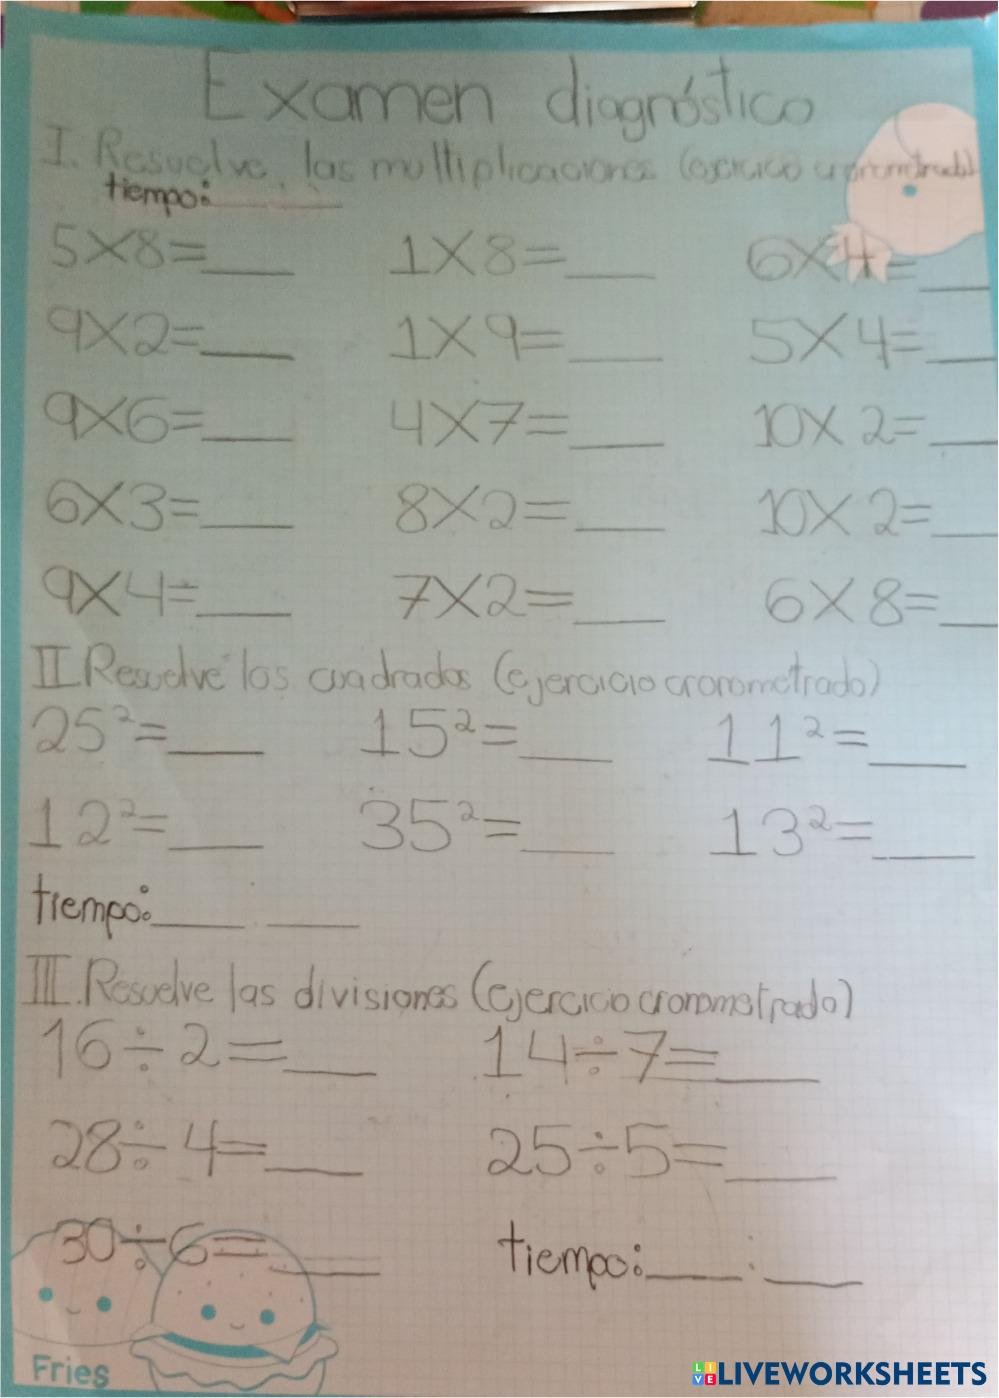 Examen diagnóstico
I. Resuelve las multiplicaciones (ejercicio cronometrado)
tiempo:___ : ___
5X8=___ 1X8=___ 6X4=___
9X2=___ 1X9=___ 5X4=___
9X6=___ 4X7=___ 10X2=___
6X3=___ 8X2=___ 10X2=___
9X4=___ 7X2=___ 6X8=___
II. Resuelve los cuadrados (ejercicio cronometrado)
25²=___ 15²=___ 11²=___
12²=___ 35²=___ 13²=___
tiempo:___ : ___
III. Resuelve las divisiones (ejercicio cronometrado)
16÷2=___ 14÷7=___
28÷4=___ 25÷5=___
30÷6=___ tiempo:___:___
Fries
LIVEWORKSHEETS